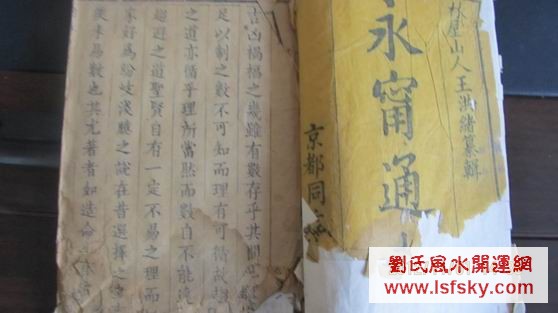 林屋山人王洪緒纂輯
永甯通
京都同
吉凶禍福之幾雖有數存乎其間
足以制之數不可知而理有可循故趨
之道亦循乎理所當然而數自不能
趨避之道聖賢自有一定不易之理而
家好為紛岐淺臆之說在昔選擇之
僕未易數也其尤著者如造命
劉氏風水開運網
www.lsfsky.com